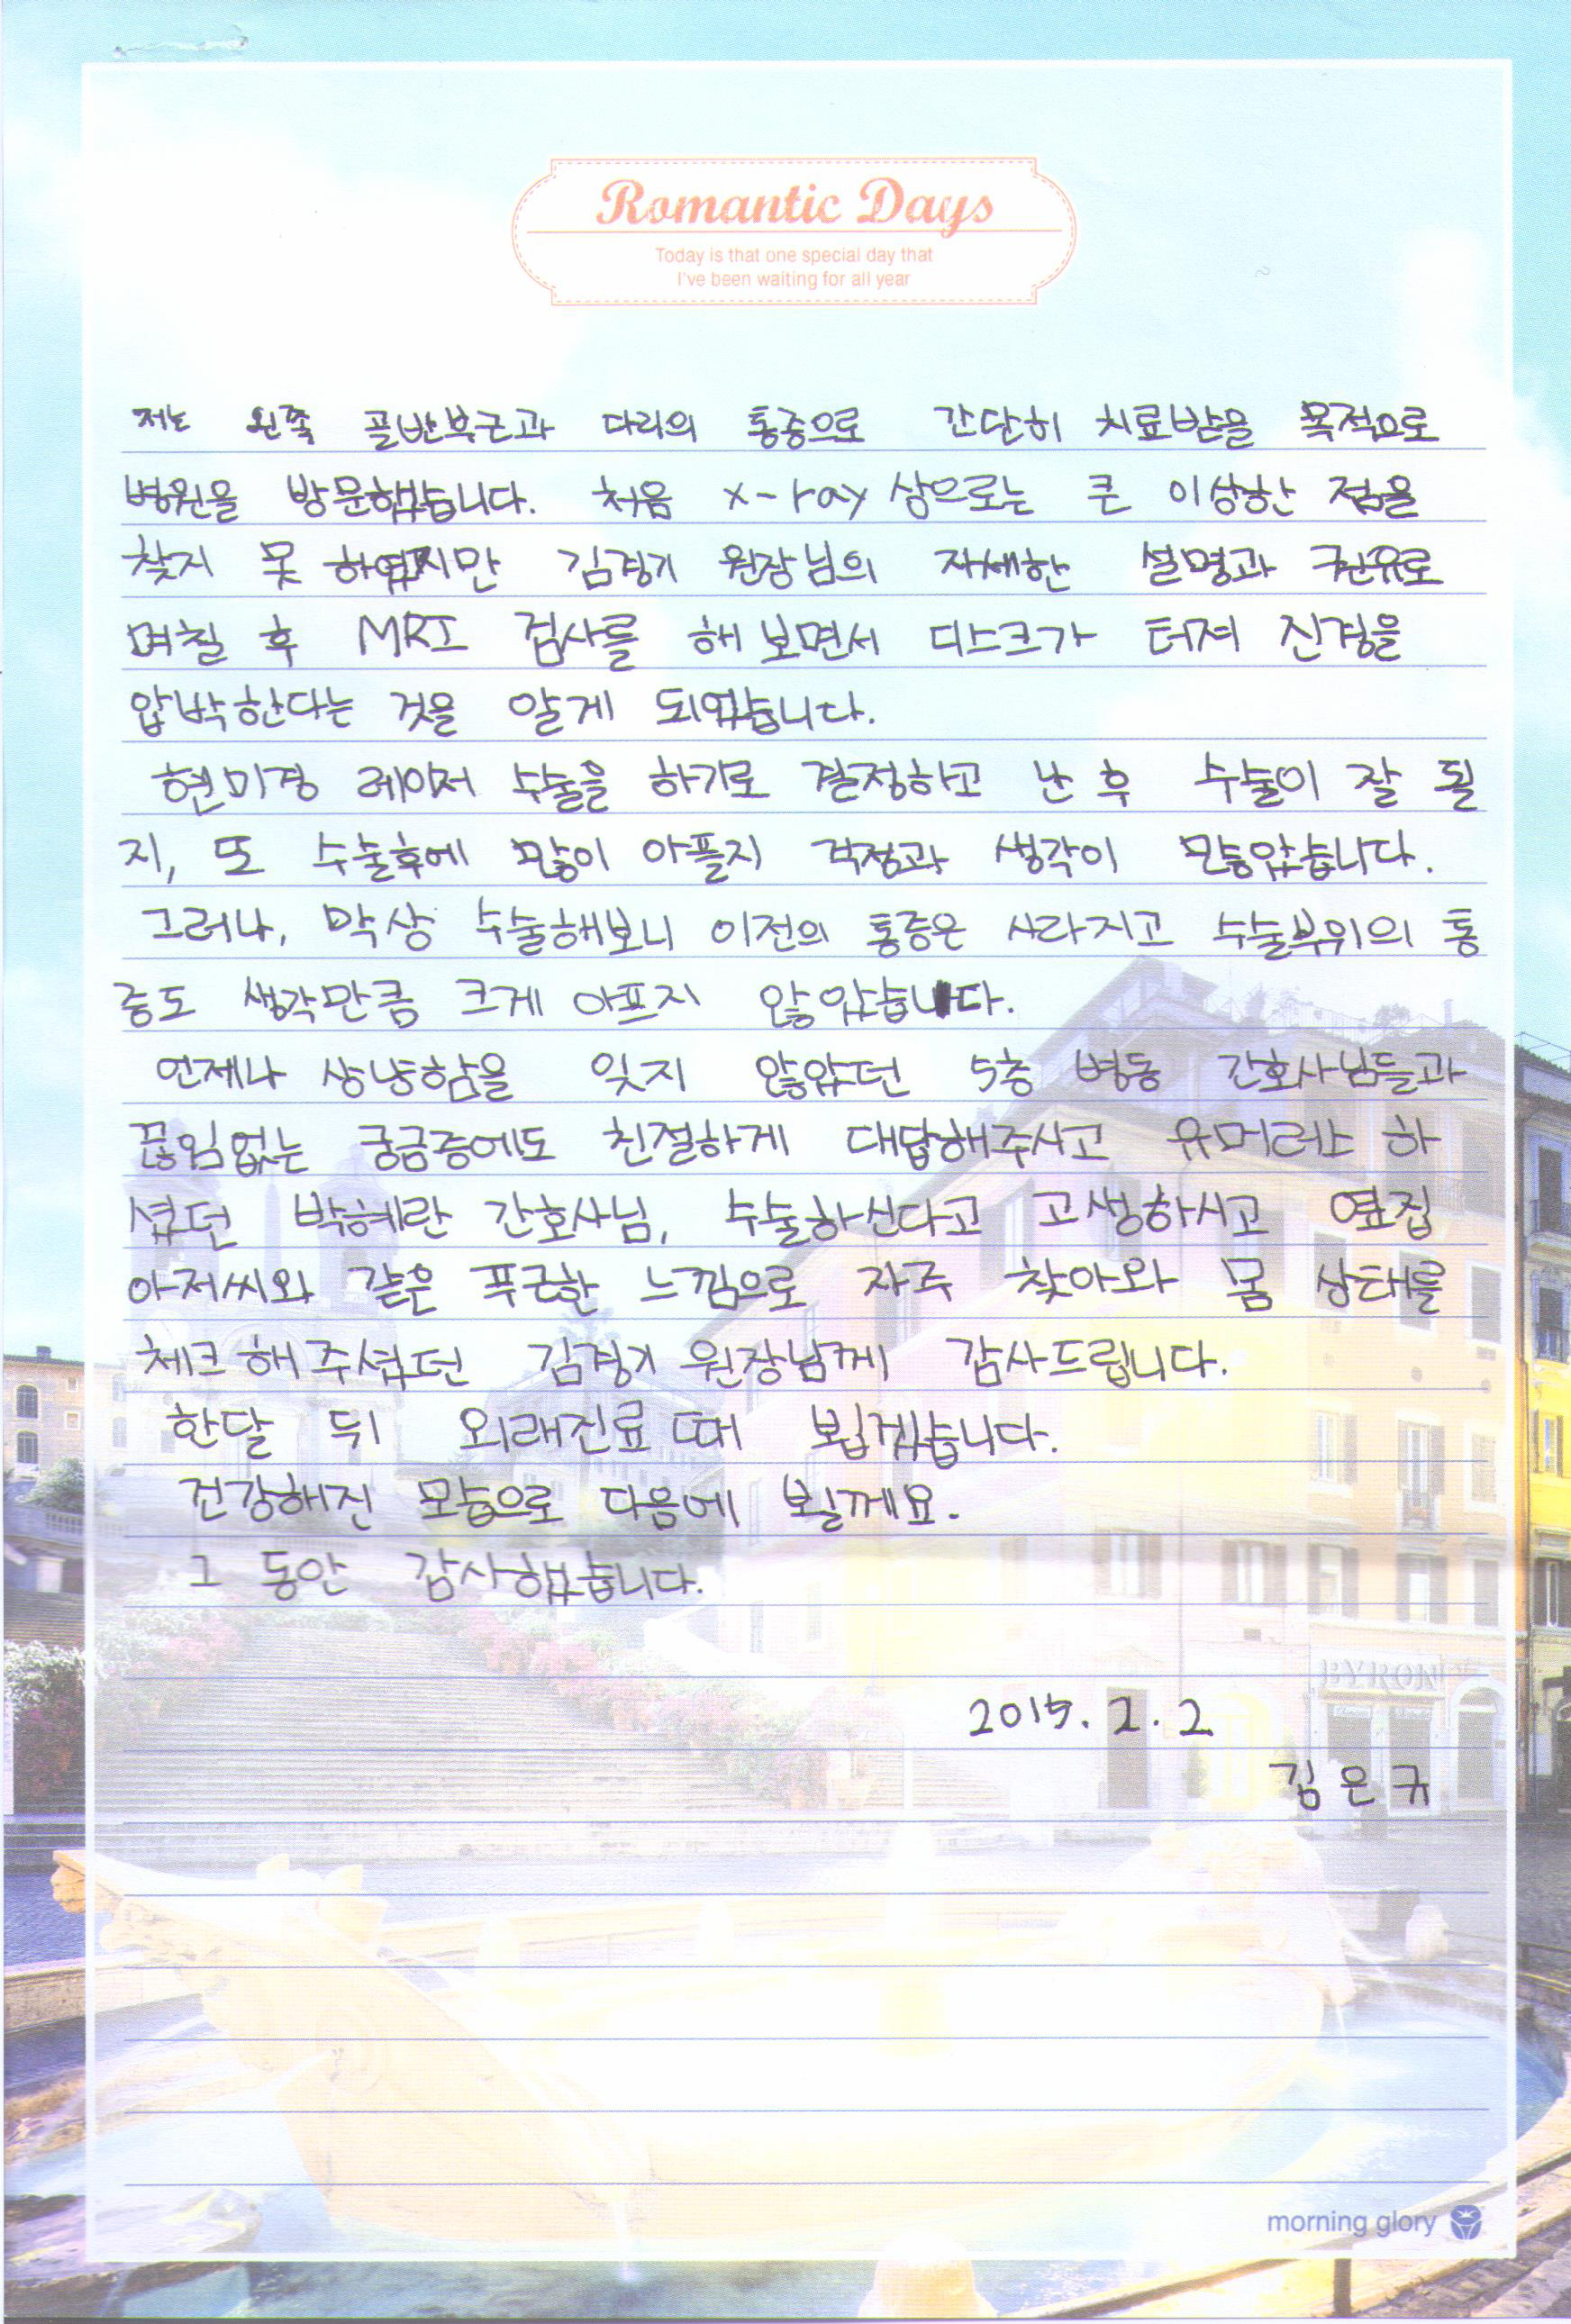 Romantic Days
Today is that one special day that
I've been waiting for all year
저는 왼쪽 골반부근과 다리의 통증으로 간단히 치료받을 목적으로
병원을 방문했습니다. 처음 x-ray 상으로는 큰 이상한 점을
찾지 못 하였지만 김경기 원장님의 자세한 설명과 권유로
며칠 후 MRI 검사를 해 보면서 디스크가 터져 신경을
압박한다는 것을 알게 되었습니다.
현미경 레이저 수술을 하기로 결정하고 난 후 수술이 잘 될
지, 또 수술후에 많이 아플지 걱정과 생각이 많았습니다.
그러나, 막상 수술해보니 이전의 통증은 사라지고 수술부위의 통
증도 생각만큼 크게 아프지 않았습니다.
언제나 상냥함을 잊지 않았던 5층 병동 간호사님들과
끊임없는 궁금증에도 친절하게 대답해주시고 유머러스 하
셨던 박혜란 간호사님, 수술하신다고 고생하시고 옆집
아저씨와 같은 푸근한 느낌으로 자주 찾아와 몸 상태를
체크 해 주셨던 김경기 원장님께 감사드립니다.
한달 뒤 외래진료 때 뵙겠습니다.
건강해진 모습으로 다음에 뵐께요.
그 동안 감사했습니다.
2015. 2. 2
김은규
BYRON
morning glory